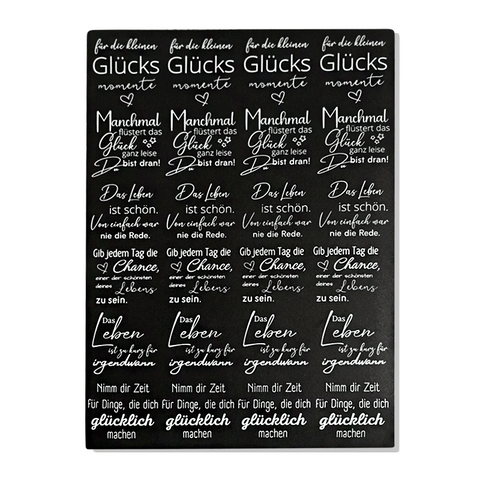 für die kleinen für die kleinen für die kleinen für die kleinen
Glücks Glücks Glücks Glücks
momente momente momente momente
Manchmal Manchmal Manchmal Manchmal
flüstert das flüstert das flüstert das flüstert das
Glück Glück Glück Glück
ganz leise ganz leise ganz leise ganz leise
Du bist dran! Du bist dran! Du bist dran! Du bist dran!
Das Leben Das Leben Das Leben Das Leben
ist schön. ist schön. ist schön. ist schön.
Von einfach war Von einfach war Von einfach war Von einfach war
nie die Rede. nie die Rede. nie die Rede. nie die Rede.
Gib jedem Tag die Gib jedem Tag die Gib jedem Tag die Gib jedem Tag die
Chance, Chance, Chance, Chance,
einer der schönsten einer der schönsten einer der schönsten einer der schönsten
deines Lebens deines Lebens deines Lebens deines Lebens
zu sein. zu sein. zu sein. zu sein.
Das Das Das Das
Leben Leben Leben Leben
ist zu kurz für ist zu kurz für ist zu kurz für ist zu kurz für
irgendwann irgendwann irgendwann irgendwann
Nimm dir Zeit Nimm dir Zeit Nimm dir Zeit Nimm dir Zeit
Für Dinge, die dich Für Dinge, die dich Für Dinge, die dich Für Dinge, die dich
glücklich glücklich glücklich glücklich
machen machen machen machen